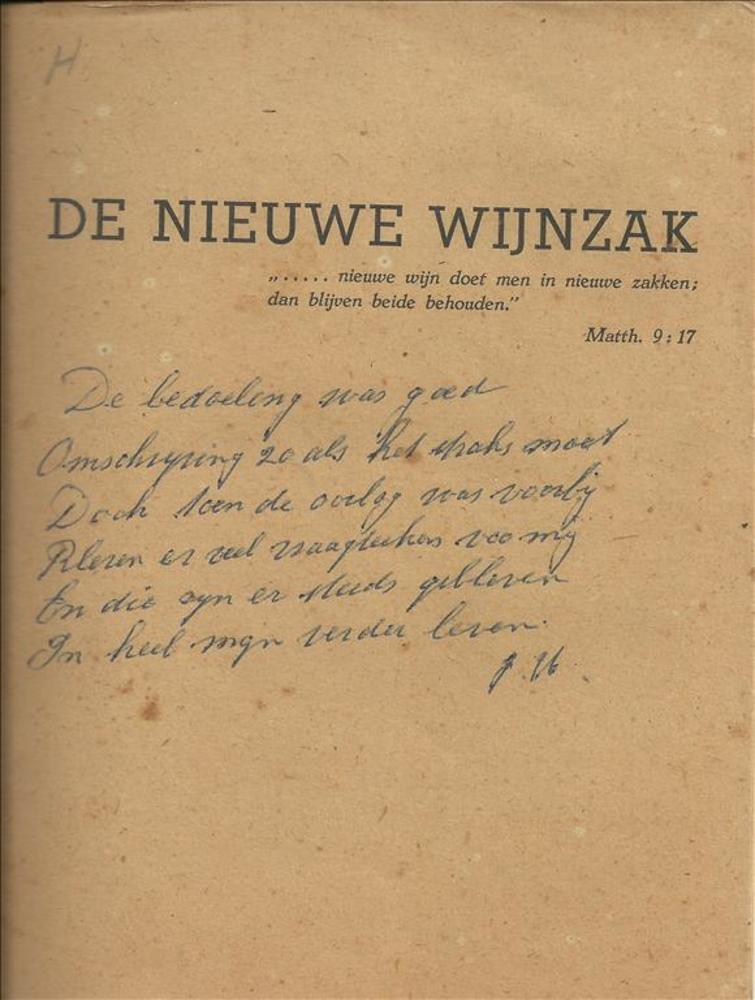 H
DE NIEUWE WIJNZAK
„..... nieuwe wijn doet men in nieuwe zakken;
dan blijven beide behouden.”
Matth. 9:17
De bedoeling was goed
Omschrijving zo als het moet
Doch toen de oorlog was voorbij
Bleven er veel vraagtekens voor mij
En die zijn er steeds gebleven
In heel mijn verder leven.